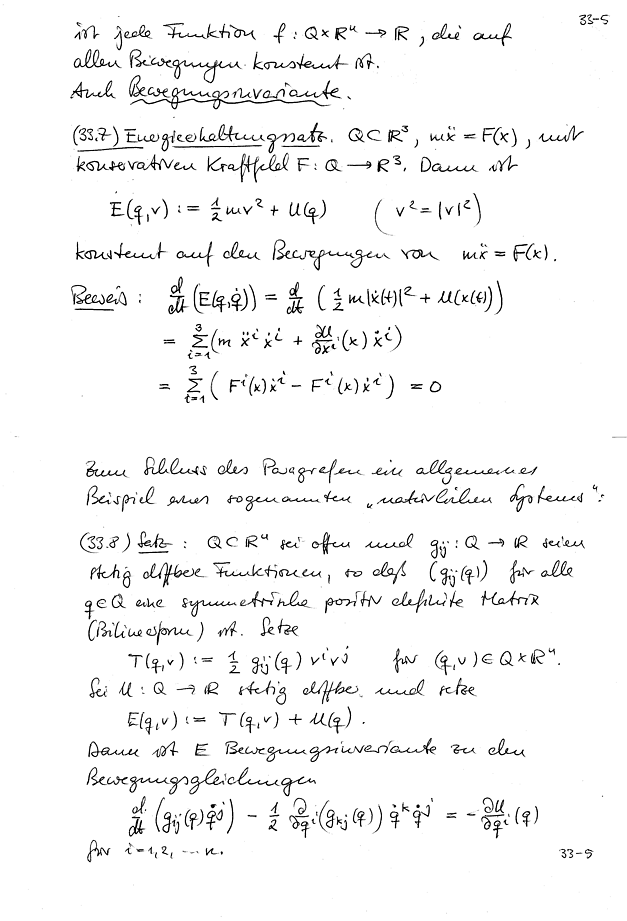 33-5
ist jede Funktion f : Q×ℝⁿ → ℝ, die auf
allen Bewegungen konstant ist.
Auch Bewegungsinvariante.
(33.7) Energieerhaltungssatz. Q⊂ℝ³, mẍ = F(x), mit
konservativen Kraftfeld F : Q → ℝ³. Dann ist
E(q,v) := ½ mv² + U(q) ( v² = |v|² )
konstant auf den Bewegungen von mẍ = F(x).
Beweis : d/dt (E(q,q̇)) = d/dt ( ½ m|ẋ(t)|² + U(x(t)) )
= Σ_{i=1}^{3} (m ẍⁱ ẋⁱ + ∂U/∂xⁱ (x) ẋⁱ)
= Σ_{i=1}^{3} ( Fⁱ(x)ẋⁱ − Fⁱ(x)ẋⁱ ) = 0
Zum Schluss des Paragrafen ein allgemeines
Beispiel eines sogenannten „natürlichen Systems":
(33.8) Satz : Q⊂ℝⁿ sei offen und g_ij : Q → ℝ seien
stetig diffbare Funktionen, so daß (g_ij(q)) für alle
q∈Q eine symmetrische positiv definite Matrix
(Bilinearform) ist. Setze
T(q,v) := ½ g_ij(q) vⁱvʲ für (q,v)∈Q×ℝⁿ.
Sei U : Q → ℝ stetig diffbar und setze
E(q,v) := T(q,v) + U(q) .
Dann ist E Bewegungsinvariante zu den
Bewegungsgleichungen
d/dt (g_ij(q) q̇ʲ) − ½ ∂/∂qⁱ (g_kj(q)) q̇ᵏ q̇ʲ = − ∂U/∂qⁱ (q)
für i=1,2, ... n.
33-5